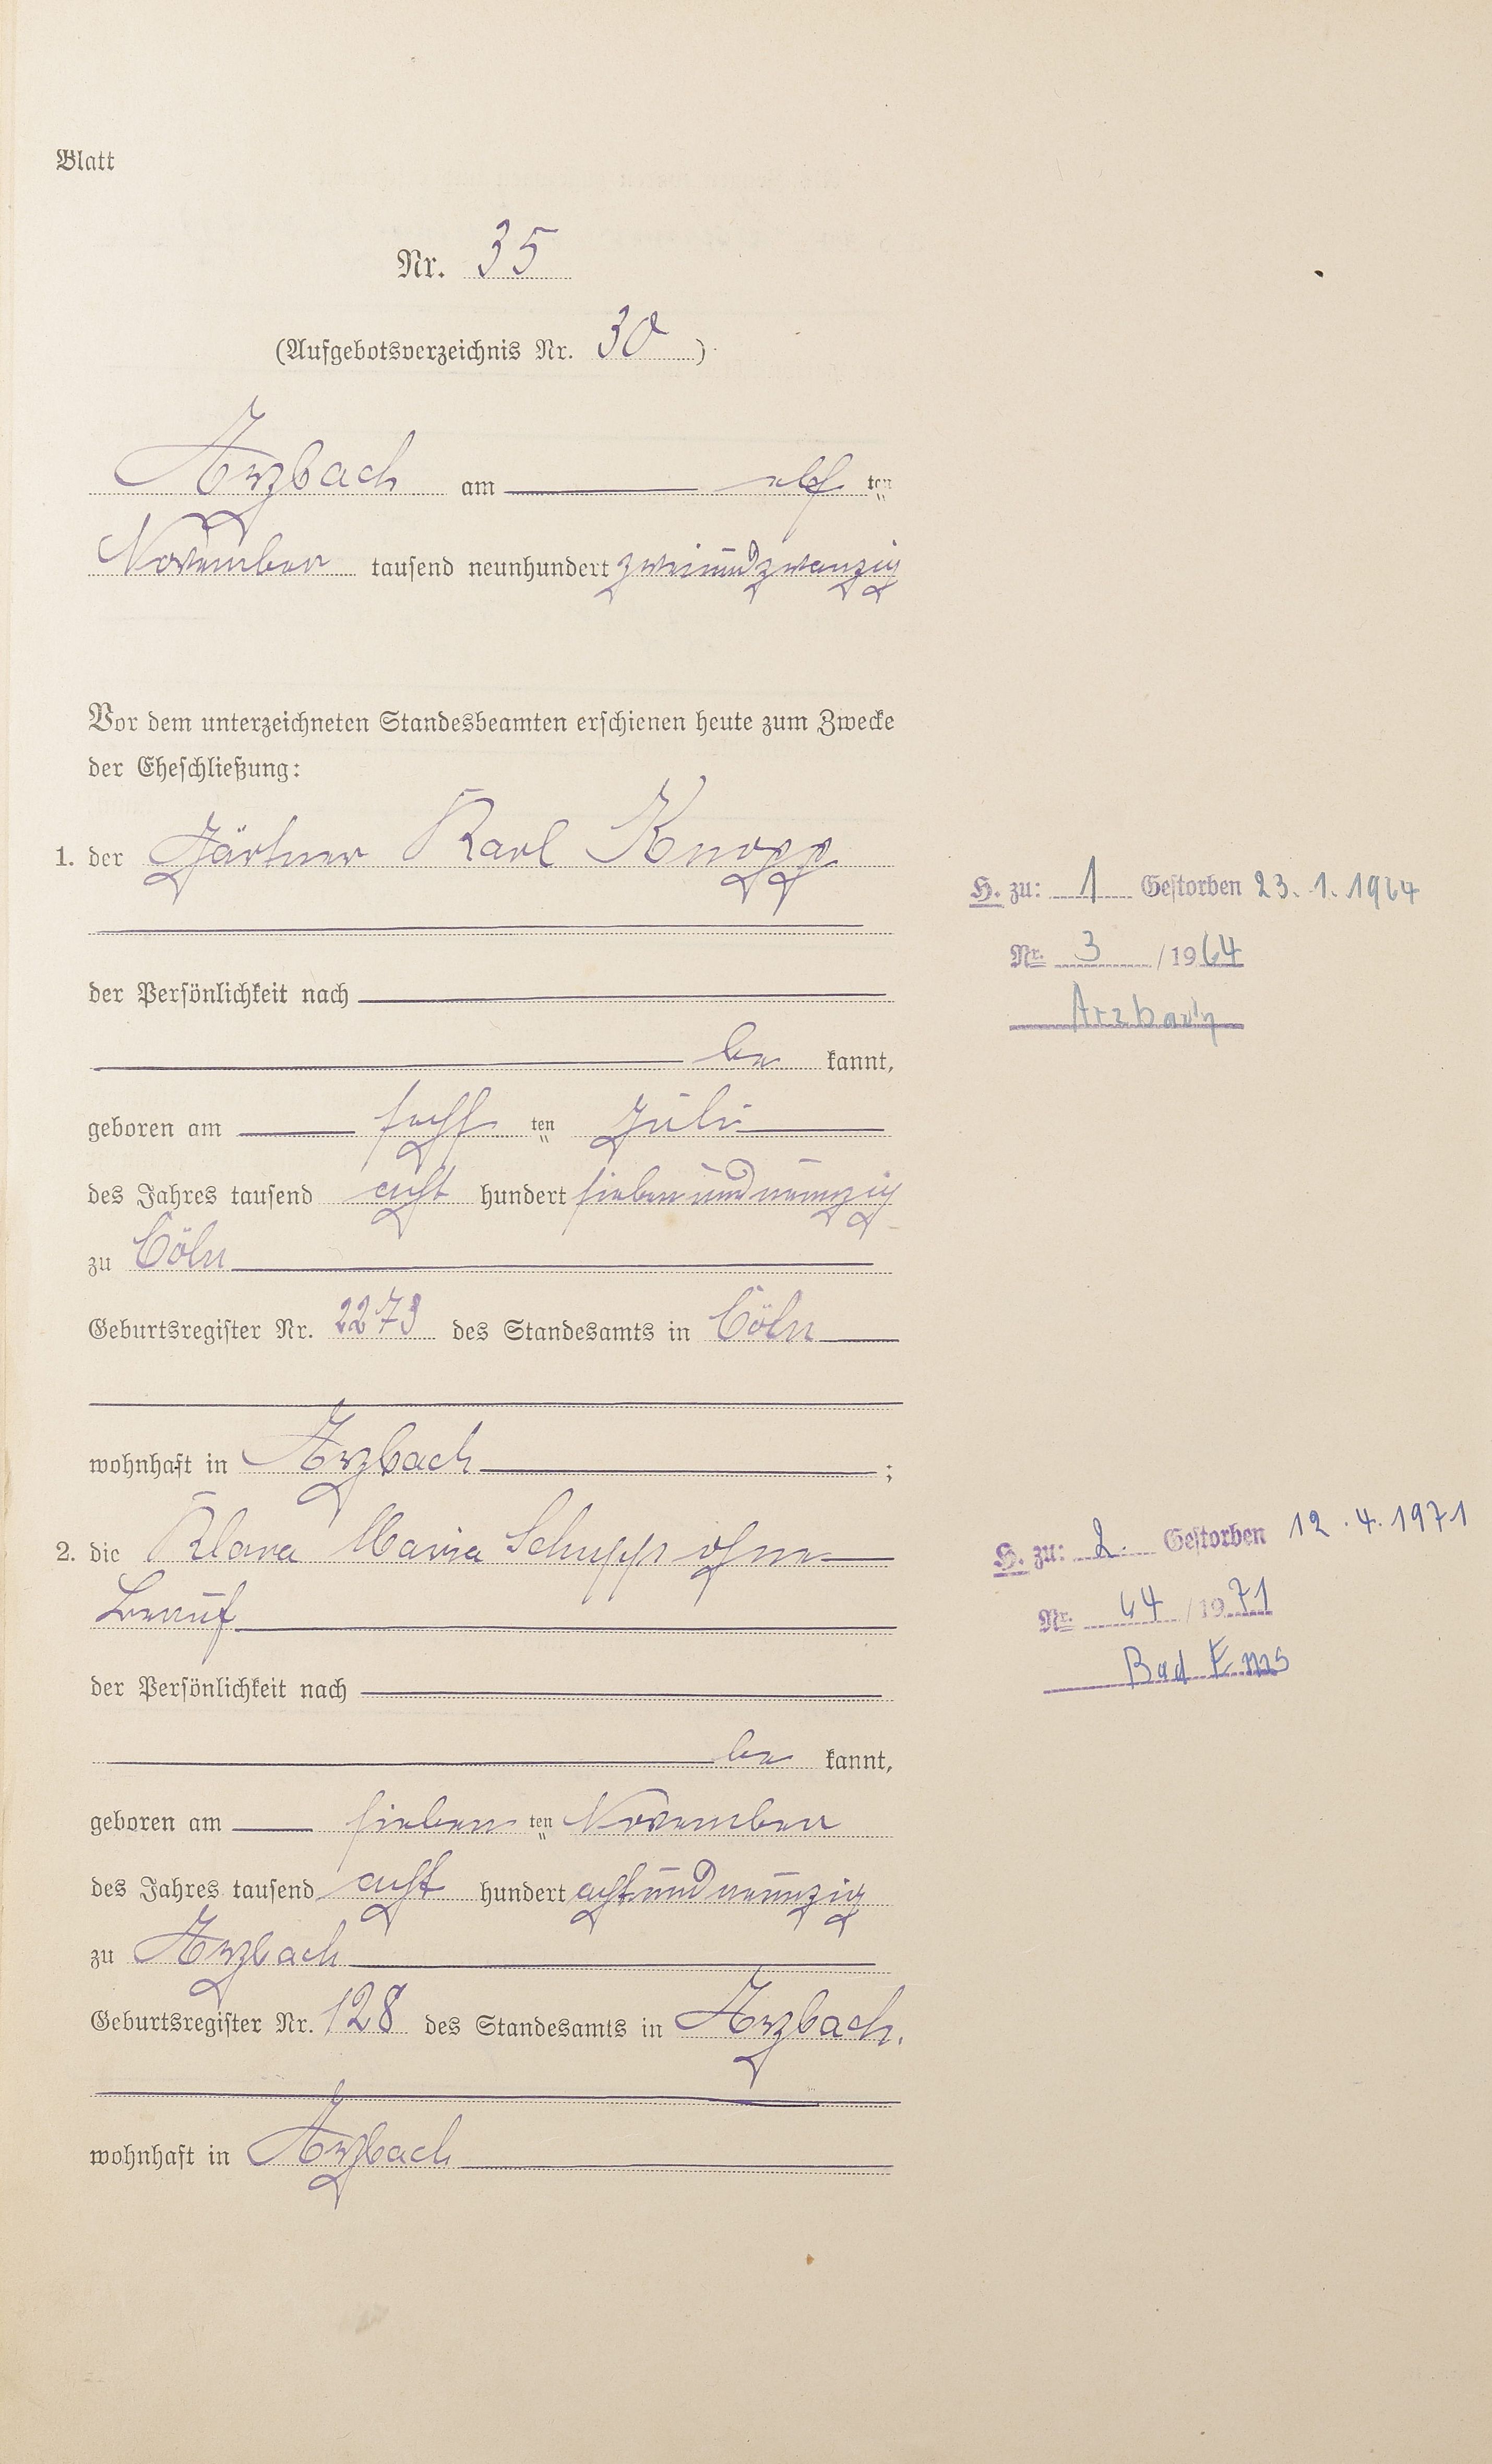 Blatt
Nr. 35
(Aufgebotsverzeichnis Nr. 30)
Arzbach am elf ten
November tausend neunhundert zweiundzwanzig
Vor dem unterzeichneten Standesbeamten erschienen heute zum Zwecke
der Eheschließung:
1. der Gärtner Karl Knopp
H. zu: 1 Gestorben 23. 1. 1964
Nr. 3 / 1964
Arzbach
der Persönlichkeit nach
be kannt,
geboren am sechs ten Juli
des Jahres tausend acht hundert siebenundneunzig
zu Cöln
Geburtsregister Nr. 2273 des Standesamts in Cöln
wohnhaft in Arzbach ;
2. die Klara Maria Schupp ohne
Beruf
H. zu: 2. Gestorben 12. 4. 1971
Nr. 64 / 1971
Bad Ems
der Persönlichkeit nach
be kannt,
geboren am sieben ten November
des Jahres tausend acht hundert achtundneunzig
zu Arzbach
Geburtsregister Nr. 128 des Standesamts in Arzbach.
wohnhaft in Arzbach